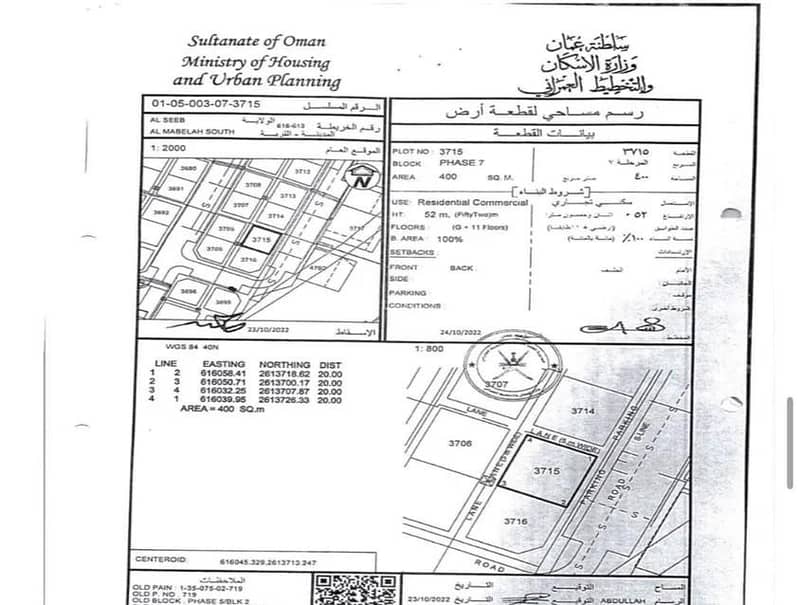 Sultanate of Oman
Ministry of Housing
and Urban Planning
سلطنة عمان
وزارة الإسكان
والتخطيط العمراني
01-05-003-07-3715 الرقم المسلسل
AL SEEB
AL MABELAH SOUTH
الولاية
616-613 رقم الخريطة
المدينة - القرية
1: 2000 الموقع العام
3680
3691
3692
3712
3708
3713
3707
3714
3705
3715
3706
3716
3717
4790
3696
3695
S
S
N
23/10/2022 الإسقاط
رسم مساحي لقطعة أرض
بيانات القطعة
PLOT NO : 3715 ٣٧١٥ القطعة
BLOCK PHASE 7 المرحلة ٧ المربع
AREA 400 SQ. M. متر مربع ٤٠٠ المساحة
شروط البناء
USE: Residential Commercial سكني تجاري الاستعمال
HT: 52 m, (FiftyTwo)m اثنان وخمسون متر ٥٢ الارتفاع
FLOORS (G + 11 Floors) (أرضي + ١١ طابقا) عدد الطوابق
B. AREA : 100% (مائة بالمائة) ١٠٠٪ نسبة البناء
SETBACKS : الإرتدادات
FRONT BACK : الخلف الأمام
SIDE : الجانبان
PARKING : موقف
CONDITIONS : شروط أخرى
24/10/2022 المخطط
WGS 84 40N
LINE EASTING NORTHING DIST
1 2 616058.41 2613718.62 20.00
2 3 616050.71 2613700.17 20.00
3 4 616032.25 2613707.87 20.00
4 1 616039.95 2613726.33 20.00
AREA = 400 SQ.m
1: 800
3707
3714
LANE
LANE (6.m.WIDE)
3706
LANE(10.9 WIDE)
3715
PARKING
PARKING
ROAD
S-LINE
S
S
LANE
3716
ROAD
CENTEROID: 616045.329,2613713.247
الملاحظات
OLD PAIN : 1-35-075-02-719
OLD P. NO : 719
OLD BLOCK : PHASE 5/BLK 2
التاريخ التوقيع المساح
23/10/2022 التاريخ التوقيع ABDULLAH الرسام